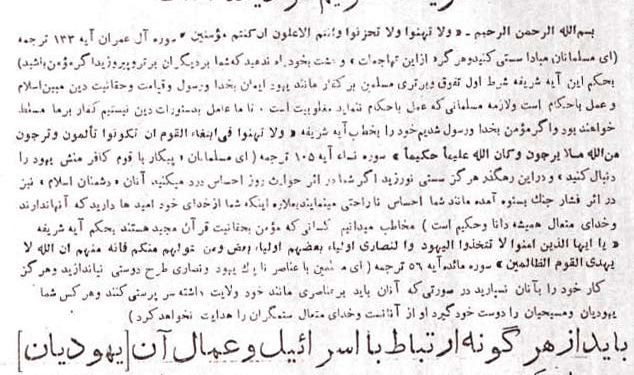 بسم‌الله الرحمن الرحیم ـ « ولا تهنوا ولا تحزنوا وانتم الاعلون ان کنتم مؤمنین » سوره آل عمران آیه ۱۳۳ ترجمه
(ای مسلمانان مبادا سستی کنید و هرگز از این تهاجمات و وحشت بخود راه ندهید که شما بر دیگران برتر و پیروزید اگر مؤمن باشید)
بحکم این آیه شریفه شرط اول تفوق و برتری مسلمین بر کفار مانند یهود ایمان بخدا و رسول و قیامت و حقانیت دین مبین اسلام
و عمل باحکام است و لازمه مسلمانی که عمل باحکام ننماید مغلوبیت است . تا ما عامل بدستورات دین نیستیم کفار بر ما مسلط
خواهند بود و اگر مؤمن بخدا و رسول شدیم خود را بخطاب آیه شریفه « ولا تهنوا فی ابتغاء القوم ان تکونوا تألمون و ترجون
من الله مالا یرجون وکان الله علیماً حکیماً » سوره نساء آیه ۱۰۵ ترجمه ( ای مسلمانان ، پیکار با قوم کافر منش یهود را
دنبال کنید » و در این رهگذر هرگز سستی نورزید اگر شما در اثر حوادث روز احساس درد میکنید آنان « دشمنان اسلام » نیز
در اثر فشار جنگ بستوه آمده مانند شما احساس ناراحتی مینمایند بعلاوه اینکه شما از خدای خود امید ها دارید که آنها ندارند
وخدای متعال همیشه دانا و حکیم است ) مخاطب میدانیم کسانی که مؤمن بحقانیت قرآن مجید هستند بحکم آیه شریفه
« یا ایها الذین امنوا لا تتخذوا الیهود وا لنصاری اولیاء بعضهم اولیاء بعض ومن یتولهم منکم فانه منهم ان الله لا
یهدی القوم الظالمین » سوره مائده آیه ۵۶ ترجمه ( ای مؤمنین با عناصر ناپاک یهود و نصاری طرح دوستی نیاندازید و هرگز
کار خود را بآنان نسپارید در صورتی که آنان باید بر عناصری مانند خود ولایت داشته سرپرستی کنند و هر کس شما
یهودیان و مسیحیان را دوست خود گیرد او از آنانست وخدای متعال ستمگران را هدایت نخواهد کرد )
باید از هر گونه ارتباط با اسرائیل و عمال آن [یهودیان]